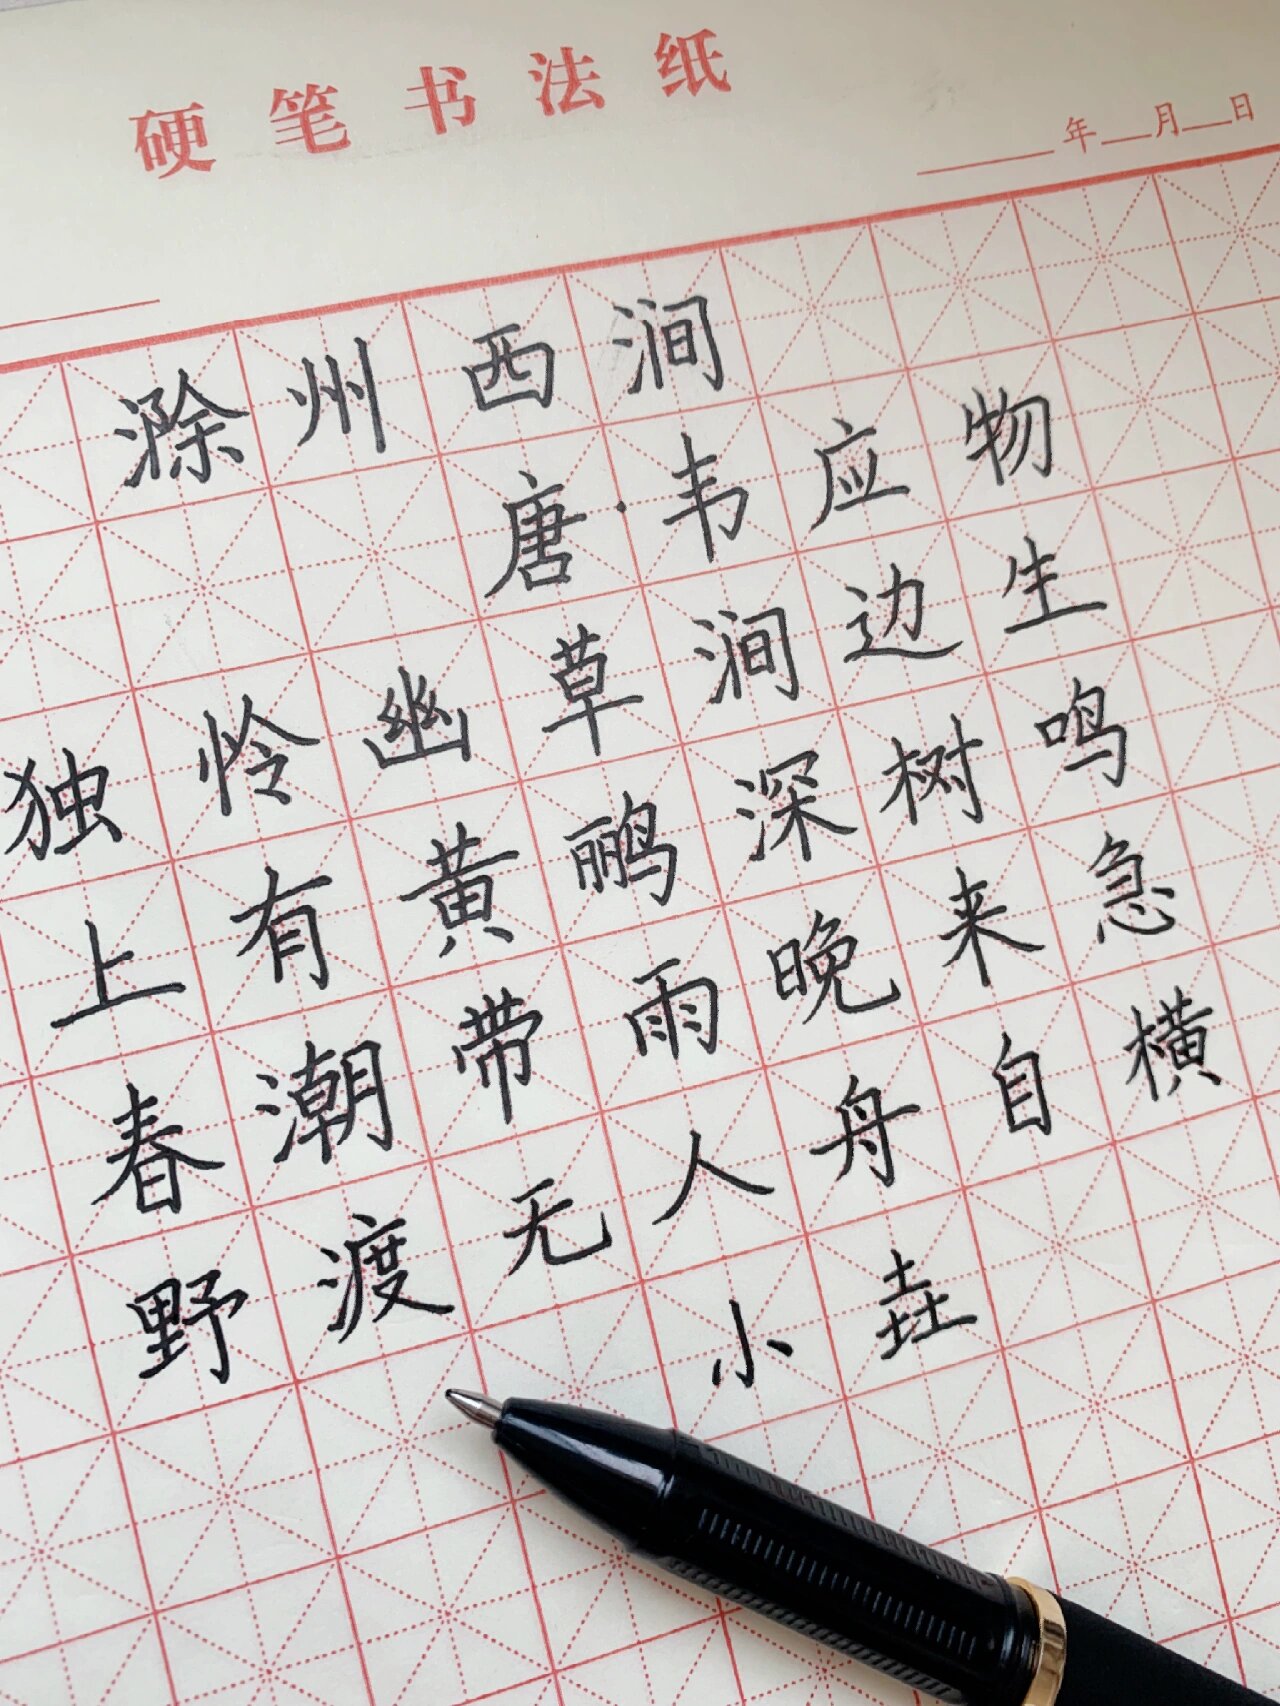 硬笔书法纸
年 月 日
滁州西涧
唐·韦应物
独怜幽草涧边生
上有黄鹂深树鸣
春潮带雨晚来急
野渡无人舟自横
小垚